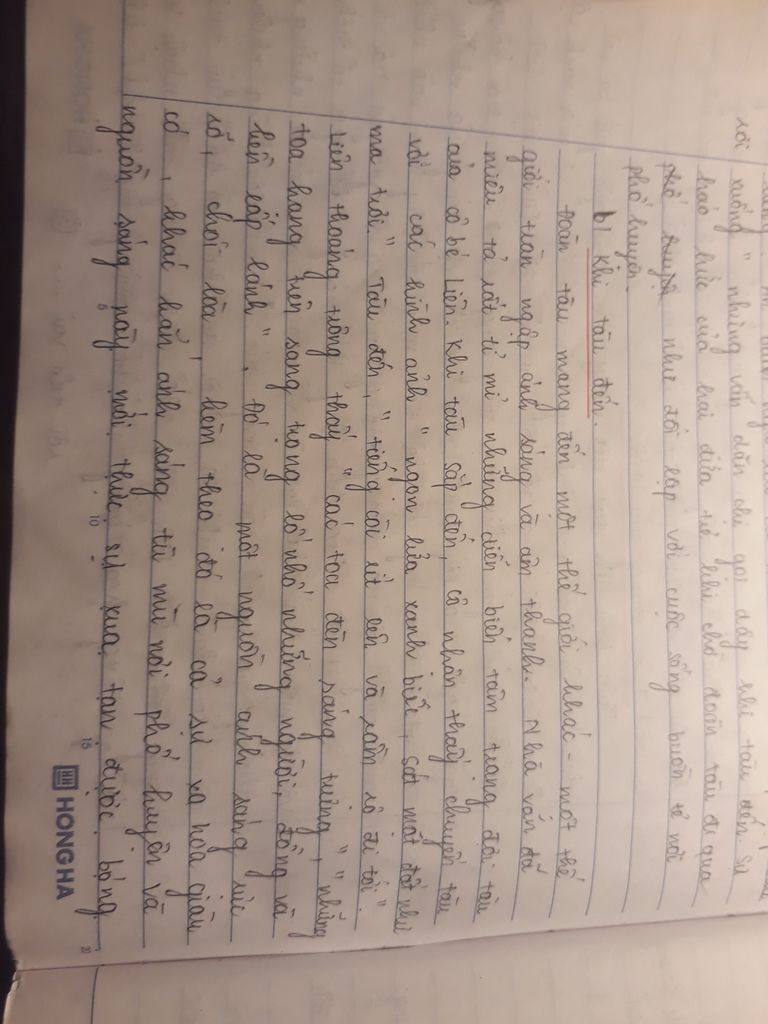 rồi xuống" nhưng vẫn dặn chị gọi dậy khi tàu đến. Sự
háo hức của hai đứa trẻ khi chờ đoàn tàu đi qua
phố huyện như đối lập với cuộc sống buồn tẻ nơi
phố huyện.
b) Khi tàu đến.
Đoàn tàu mang đến một thế giới khác - một thế
giới tràn ngập ánh sáng và âm thanh. Nhà văn đã
miêu tả rất tỉ mỉ những diễn biến tâm trạng đợi tàu
của cô bé Liên. Khi tàu sắp đến, cô nhận thấy chuyến tàu
với các hình ảnh "ngọn lửa xanh biếc, sát mặt đất như
ma trơi" Tàu đến, "tiếng còi rít lên và rầm rộ đi tới".
Liên thoáng trông thấy "các toa đèn sáng trưng", "những
toa hạng trên sang trọng lố nhố những người, đồng và
kền lấp lánh", đó là một nguồn ánh sáng rực
rỡ, chói lòa, kèm theo đó là cả sự xa hoa giàu
có, khác hẳn ánh sáng tù mù nơi phố huyện và
nguồn sáng này mới thực sự xua tan được bóng
HONG HA
5
10
15
20